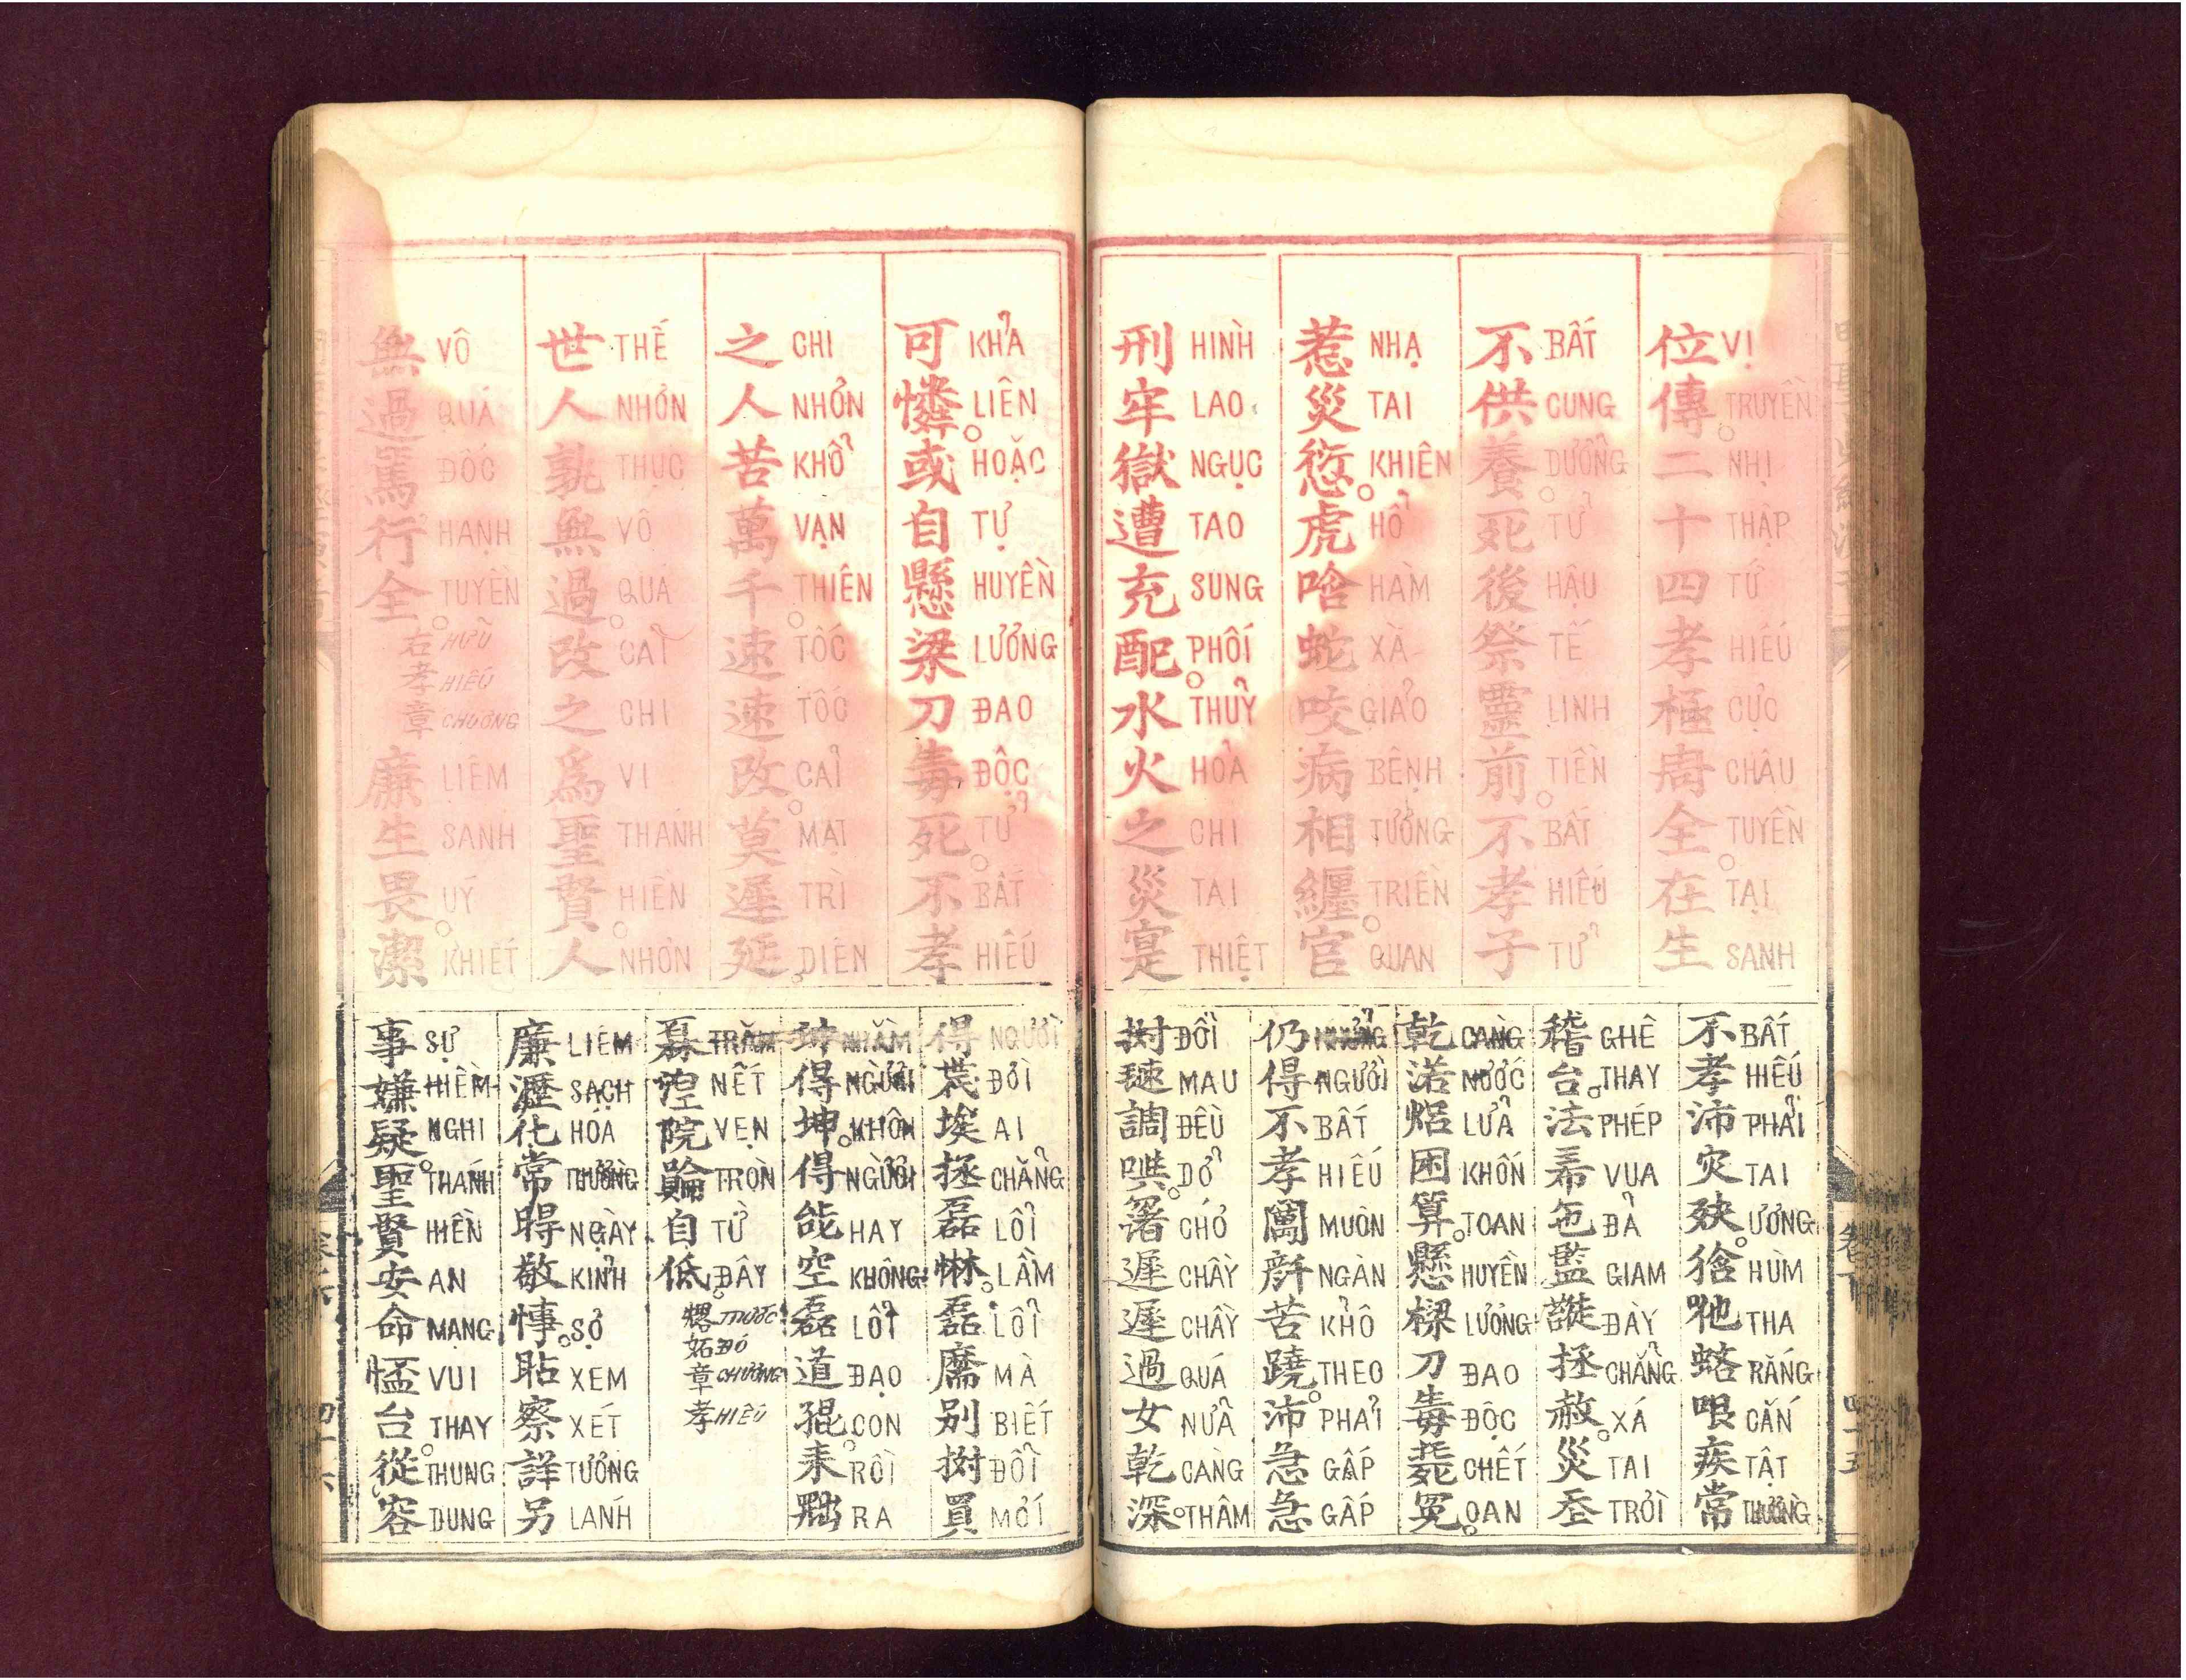 位傳二十四孝極周全在生
VỊ TRUYỀN NHỊ THẬP TỨ HIẾU CỰC CHÂU TUYỀN TẠI SANH
不供養死後祭靈前不孝子
BẤT CUNG DƯỠNG TỬ HẬU TẾ LINH TIỀN BẤT HIẾU TỬ
惹災愆虎啥蛇咬病相纏官
NHẠ TAI KHIÊN HỔ HÀM XÀ GIẢO BỆNH TƯỞNG TRIỀN QUAN
刑牢獄遭充配水火之災寔
HÌNH LAO NGỤC TAO SUNG PHỐI THUỶ HỎA CHI TAI THIỆT
不孝沛灾殃㺀吔蛒哏疾常
BẤT HIẾU PHẢI TAI ƯƠNG HÙM THA RẮNG CẮN TẬT THƯỜNG
稽台法希㐌監謹拯赦災𡗶
GHÊ THAY PHÉP VUA ĐÀ GIAM ĐÀY CHẲNG XÁ TAI TRỜI
乾渃焒困算懸樑刀毒𣩂冤
CÀNG NƯỚC LỬA KHỐN TOAN HUYỀN LƯƠNG ĐAO ĐỘC CHẾT OAN
仍得不孝𨷈𠦳苦蹺沛急急
NHỮNG NGƯỜI BẤT HIẾU MUÔN NGÀN KHỔ THEO PHẢI GẤP GẤP
𢬭𨖧調㗂䇡遲遲過女乾深
ĐỔI MAU ĐỀU DỞ CHỚ CHẦY CHẦY QUÁ NỮA CÀNG THÂM
可憐或自懸梁刀毒死不孝
KHẢ LIÊN HOẶC TỰ HUYỀN LƯƠNG ĐAO ĐỘC TỬ BẤT HIẾU
之人苦萬千速速改莫遲延
CHI NHƠN KHỔ VẠN THIÊN TỐC TỐC CẢI MẠT TRÌ DIÊN
世人孰無過改之爲聖賢人
THẾ NHƠN THỤC VÔ QUÁ CẢI CHI VI THÁNH HIỀN NHƠN
無過篤行全
VÔ QUÁ ĐỐC HẠNH TUYỀN
右孝章
HỮU HIẾU CHƯƠNG
廉生畏潔
LIÊM SANH UÝ KHIẾT
得𠁀埃拯磊惏磊𦓡别𢬭買
NGƯỜI ĐỜI AI CHẲNG LỖI LẦM LỖI MÀ BIẾT ĐỔI MỚI
得坤得能空磊道𡥵耒𠚢
NHẰM NGƯỜI KHÔN NGƯỜI HAY KHÔNG LỖI ĐẠO CON RỒI RA
涅院𧷺自低
TRĂM NẾT VẸN TRÒN TỪ ĐÂY
章孝
TRƯỚC ĐÓ CHƯƠNG HIẾU
廉瀝化常𣈜敬悖貼察詳另
LIÊM SẠCH HÓA THƯỜNG NGÀY KINH SỢ XEM XÉT TƯỜNG LÁNH
事嫌疑聖賢安命𢝙台從容
SỰ HIỀM NGHI THÁNH HIỀN AN MẠNG VUI THAY THUNG DUNG